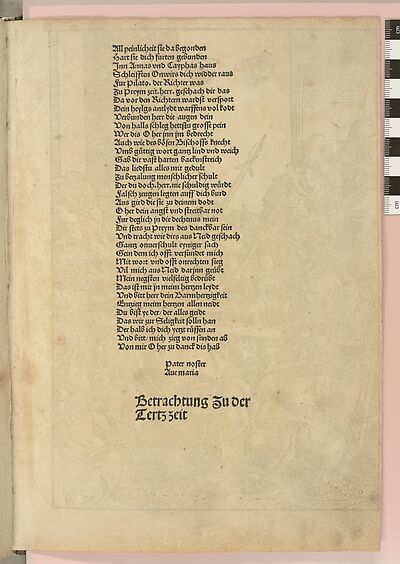 All peinlicheit sie da begonden
Hart sie dich fürten gebunden
Inn Annas vnd Cayphas haus
Schleifften Onwirs dich widder raus
Fur Pilato, der Richter was
Zu Preym zeit, herr, geschach dir das
Da vor den Richtern wardst verspott
Dein heylgs antlydt warffens vol kodt
Verbunden herr die augen dein
Von halls schleg hettstu grosst pein
Wer dis O her jnn jm bedrecht
Auch wie des bösen Bischoffs knecht
Vmb güttig wort gantz lind vnd weich
Gab dir vast harten backenstreich
Das liedstu alles mit gedult
Zu betzalung menschlicher schult
Der du doch, herr, nie schuldig würdt
Falsch zeugen legten auff dich burd
Aus gird die sie zu deinem dodt
O her dein angst vnd streitbar not
Fur deglich jn die dechtnus mein
Dir stets zu Preym des danckbar sein
Vnd tracht wie dirs aus Neid geschach
Gantz onuerschult eyniger sach
Gein dem ich offt versündet mich
Mit wort vnd offt onrechten sieg
Vil mich aus Neid darjnn geübt
Mein negsten vielfeltig bedrübt
Das ist mir jn meim hertzen leydt
Vnd bitt herr dein Barmhertzigkeit
Entzieg meim hertzen allen neidt
Du bist ye der, der alles geidt
Das wir zur Seligkeit solln han
Der halb ich dich yetzt rüffen an
Vnd bitt, mich zieg von sünden aß
Von mir O her zu danck dis haß
Pater noster
Aue maria
Betrachtung Zu der
Tertz zeit